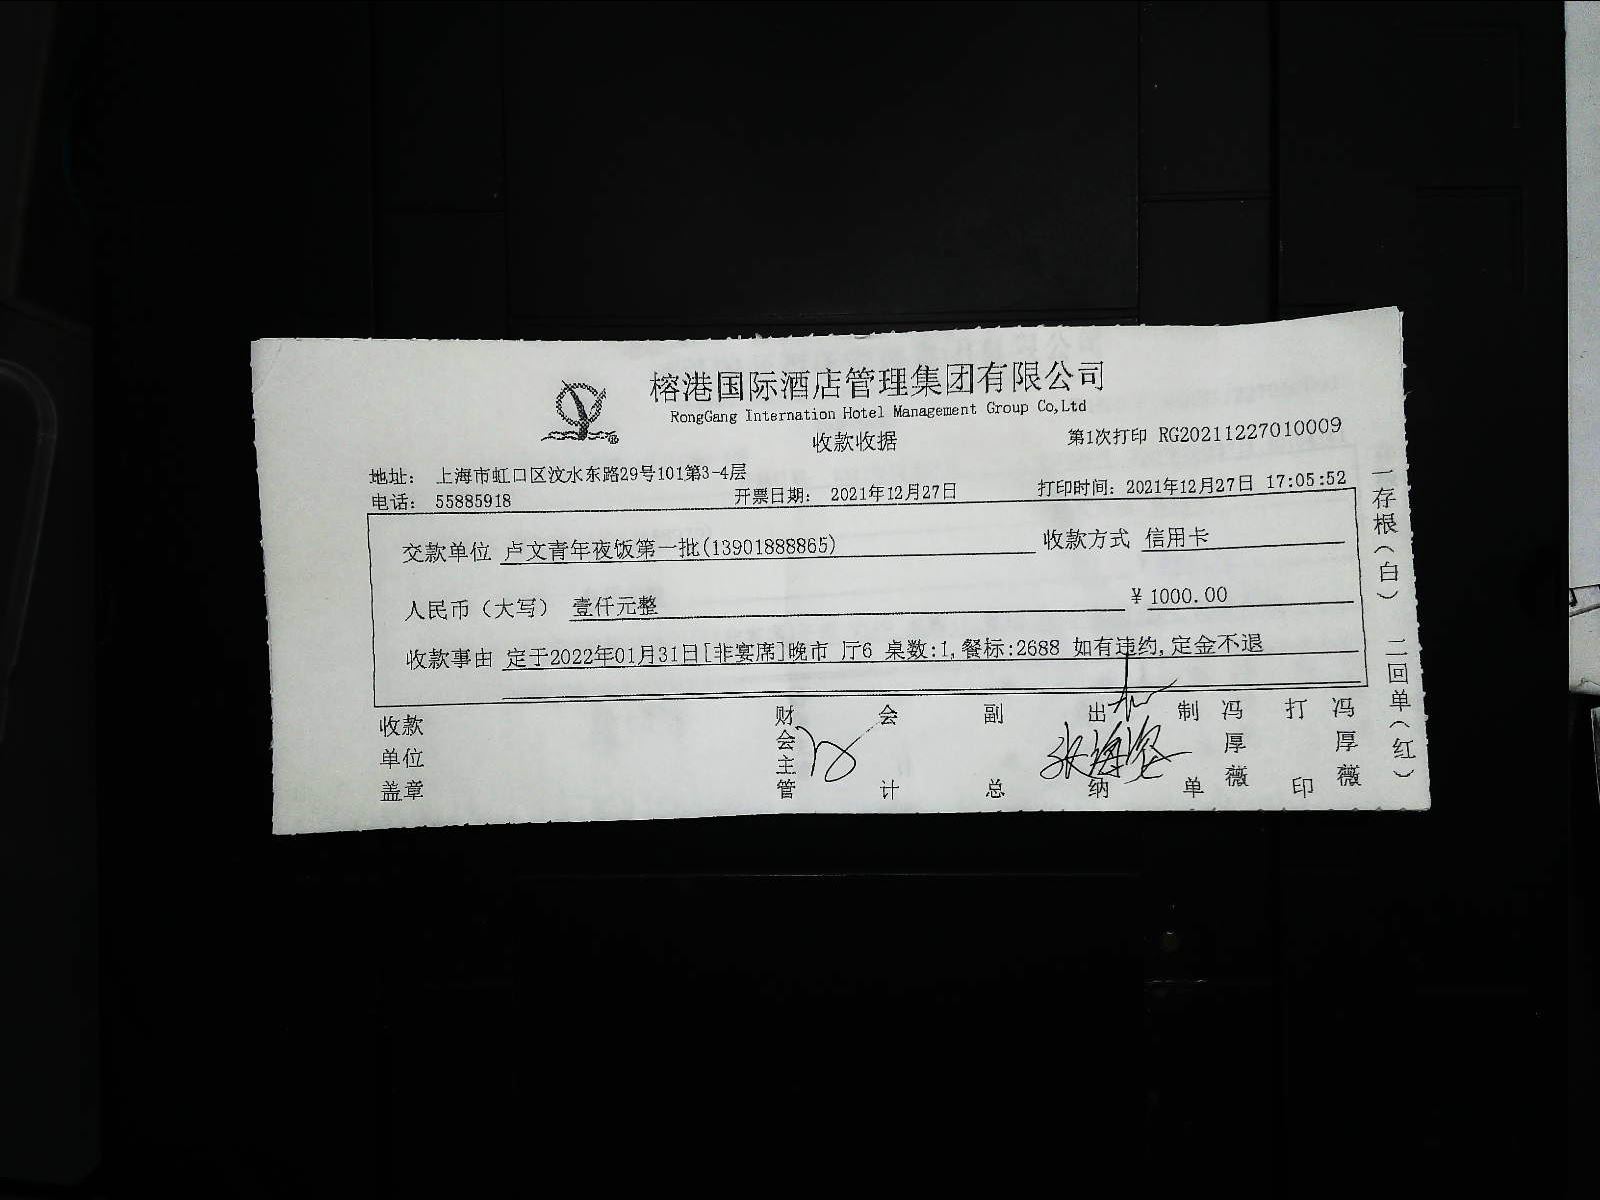 榕港国际酒店管理集团有限公司
RongGang Internation Hotel Management Group Co,Ltd
收款收据
第1次打印 RG20211227010009
地址： 上海市虹口区汶水东路29号101第3-4层
电话： 55885918 开票日期： 2021年12月27日 打印时间：2021年12月27日 17:05:52
交款单位 卢文青年夜饭第一批(13901888865) 收款方式 信用卡
人民币（大写） 壹仟元整 ¥1000.00
收款事由 定于2022年01月31日[非宴席]晚市 厅6 桌数:1,餐标:2688 如有违约,定金不退
收款单位盖章
财会主管
会计
副总
出纳
制单 冯厚薇
打印 冯厚薇
一存根（白） 二回单（红）